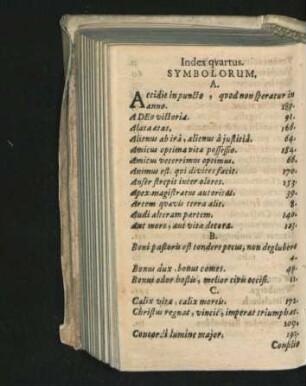 Index qvartus.
SYMBOLORUM,
A.
Accidit in puncto, qvod non speratur in
anno. 185.
A DEo victoria. 91.
Alata ætas. 166.
Alienus ab irâ, alienus à justitiâ. 64.
Amicus optima vita possessio. 184.
Amicus veterrimus optimus. 66.
Animus est, qui divites facit. 170.
Anser strepit inter olores. 153.
Apex magistratus autoritas. 39.
Artem quævis terra alit. 8.
Audi alteram partem. 140.
Aut mors, aut vita decora. 125.
B.
Boni pastoris est tondere pecus, non deglubere
4.
Bonus dux, bonus comes. 48.
Bonus odor hostis, melior civis occisi. 11.
C.
Calix vita, calix mortis. 172.
Christus regnat, vincit, imperat triumphat.
209.
Concordi lumine major. 197.
Consilio